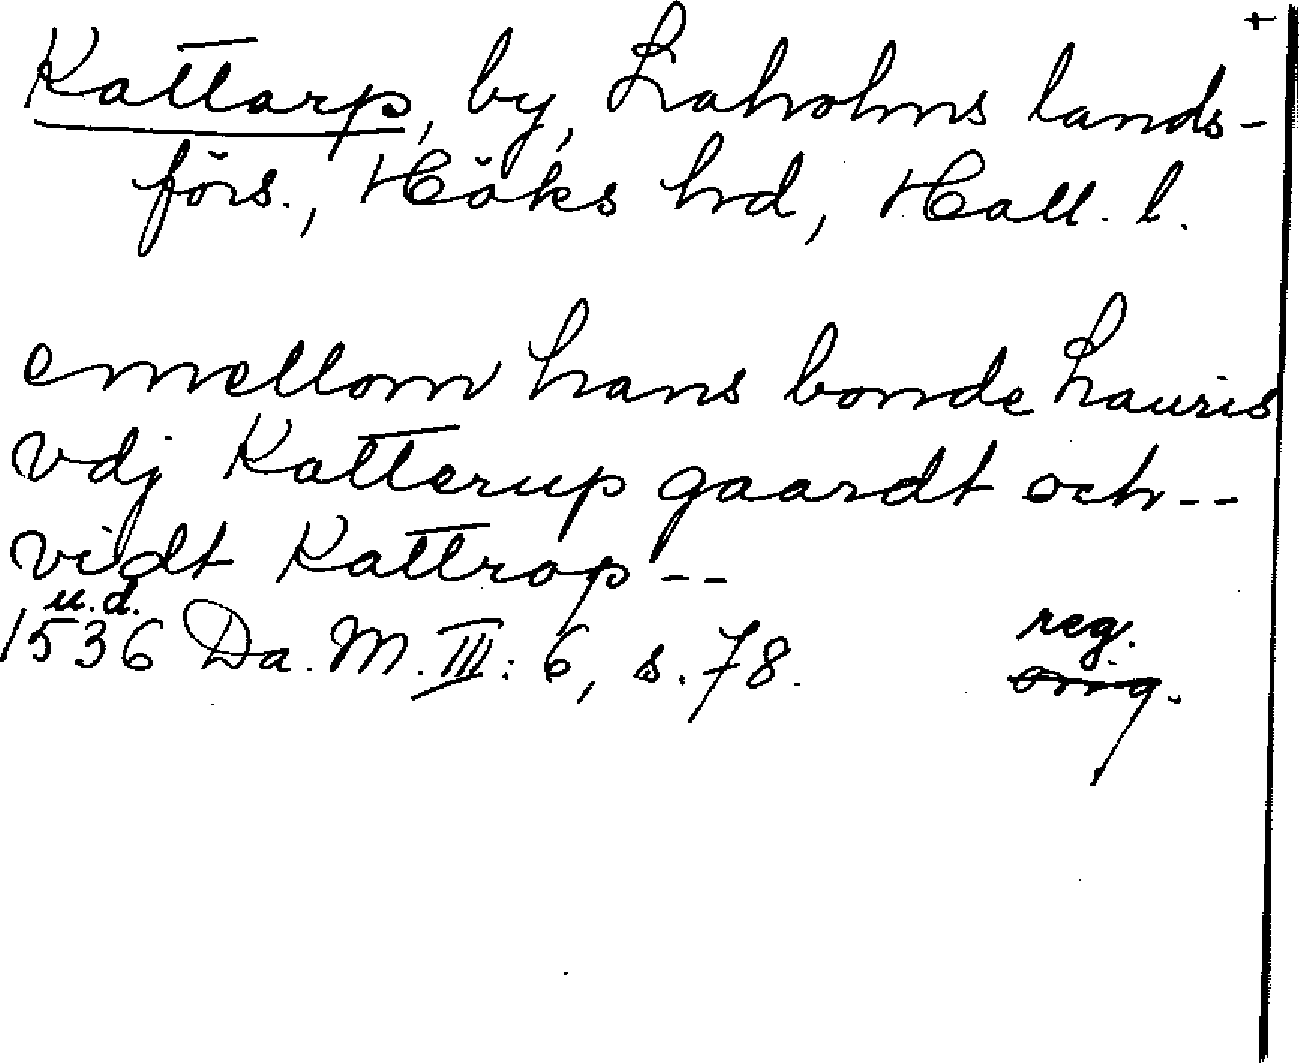 +
Kattarp, by, Laholms lands-
förs., Höks hrd, Hall. l.
emellom hans bonde Lauris
vdj Katterup gaardt och--
vidt Kattrop--
u.d.
1536 Da. M. III: 6, s. 78.
reg.
orig.